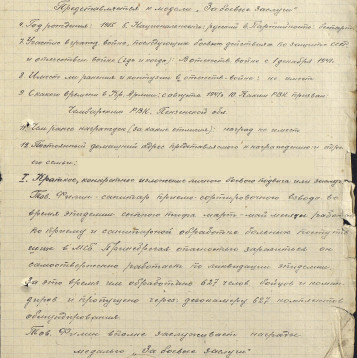 Представляется к медали „За боевые заслуги"
4. Год рождения: 1915 5. Национальность: русский 6. Партийность: беспарт.
7. Участие в гражд. войне, последующих боевых действиях по защите СССР
и отечествен. войне (где и когда): В отечеств. войне с декабря 1941.
8. Имеет ли ранения и контузии в отечеств. войне: не имеет
9. С какого времени в Кр. Армии: с августа 1941. 10. Каким РВК призван
РВК. Пензенской обл
11. Чем ранее награжден (за какие отличия): наград не имеет
12. Постоянный домашний адрес представляемого к награждению и адрес
его семьи:
I. Краткое, конкретное изложение личного боевого подвига или заслуг.
Тов. санитар приемо-сортировочного взвода во
время эпидемии сыпного тифа март-май месяцы работал
по приему и санитарной обработке больных поступив
ших в МСБ. опасности заразиться он
самоотверженно работал по ликвидации эпидемии.
За это время им обработано 627 челов. бойцов и коман-
диров и пропущено через дезокамеру 627 комплектов
обмундирования.
Тов. вполне заслуживает награды
медалью „За боевые заслуги"